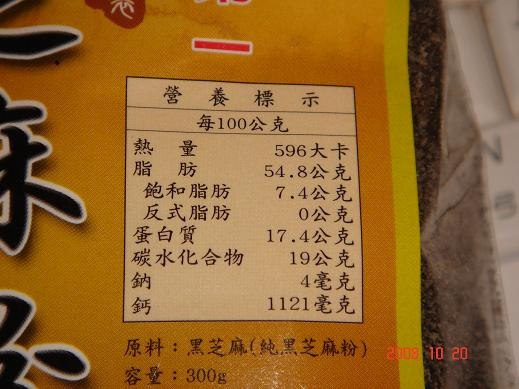 第一
芝麻粉
營養標示
每100公克
熱量 596大卡
脂肪 54.8公克
飽和脂肪 7.4公克
反式脂肪 0公克
蛋白質 17.4公克
碳水化合物 19公克
鈉 4毫克
鈣 1121毫克
原料：黑芝麻(純黑芝麻粉)
容量：300g
2008 10 20